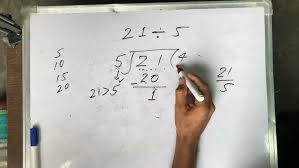 21÷5
5
10
15
20
21>5
5)21(4
-20
1
21/5